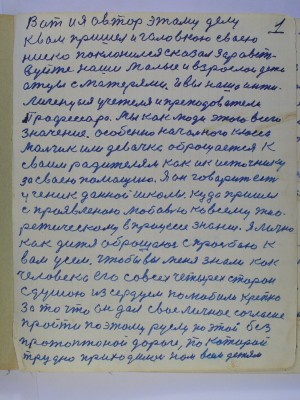 1
Вот и я автор этому делу
к вам пришел и головкою своею
ниско поклонился сказал здравст-
вуйте наши малые и взрослые дети
отцы с матерями. И вы наш инти-
личенция учетеля и преподователя
Прафессара. Мы как люди этого всего
значение. Особенно началного класса
малчик или девачка обращается к
своим родителям как ик источнику
за своею помащию. Я он гаварит есть
ученик данной школы, куда пришел
с проявленою любовю ко всему тео-
ретическому в процессе знании. Я лично
как дитя обращаюс с прозбаю к
вам усем. Чтобы вы меня знали как
человека его со всех четырех сторон
с душою из сердцем полюбили крепко
За то что он дал свое личное согласие
пройти по этому руслу по этой без
протоптоной дороге, по которой
трудно приходимы нам всем детям